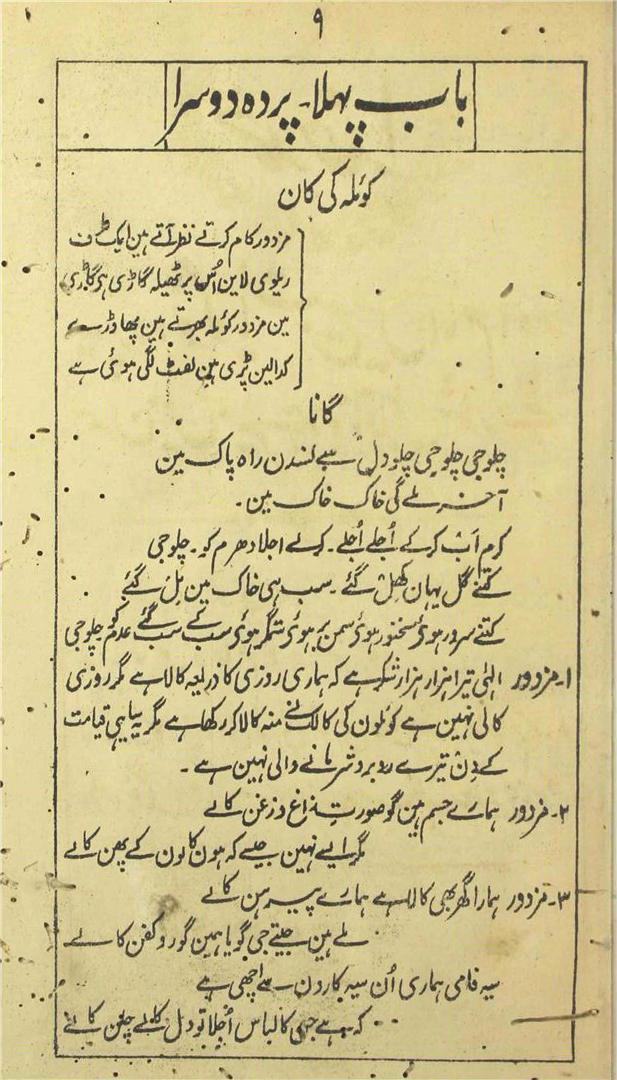 ۹
باب پہلا۔ پردہ دوسرا
کوئلہ کی کان
مزدور کام کرتے نظر آتے ہین ایک طرف
ریلوی لاین اُس پر ٹھیلہ گاڑی ہی گاڑی
مین مزدور کوئلہ بھرتے ہین پھاوڑے
کدالین پڑی ہین لفٹ لگی ہوئی ہے
گانا
چلو جی چلو جی چلو دل سے لندن راہ پاک مین
آخر ملے گی خاک خاک مین۔
کرم اَب کرکے اُجلے اُجلے۔ کرلے اجلا دھرم کو۔ چلو جی
کتنے گل یہان کھِل گئے۔ سب ہی خاک مین مِل گئے
کتنے سرور ہوئی سخنور ہوئی سمن بر ہوئی ستمگر ہوئی سب کے سب گئے عدم کو چلو جی
۱۔ مزدور الٰہی تیرا ہزار ہزار شکر ہے کہ ہماری روزی کا ذریعہ کالا ہے مگر روزی
کالی نہین ہے کوئلون کی کالک نے منہ کالا کر رکھا ہے مگر یہ سیاہی قیامت
کے دِن تیرے روبرو شرمانے والی نہین ہے۔
۲۔ مزدور ہمارے جسم ہین گو صورتِ زاغ و زغن کالے
مگر ایسے نہین جیسے کہ ہون کالون کے پھن کالے
۳۔ مزدور ہمارا گھر بھی کالا ہے ہمارے پیرہن کالے
ملے ہین جیتے جی گویا ہمین گور و کفن کالے
سیہ فامی ہماری اُن سیہ کارون سے اچھی ہے
کہ ہے جن کا لباس اُجلا تو دل کالے چلن کالے